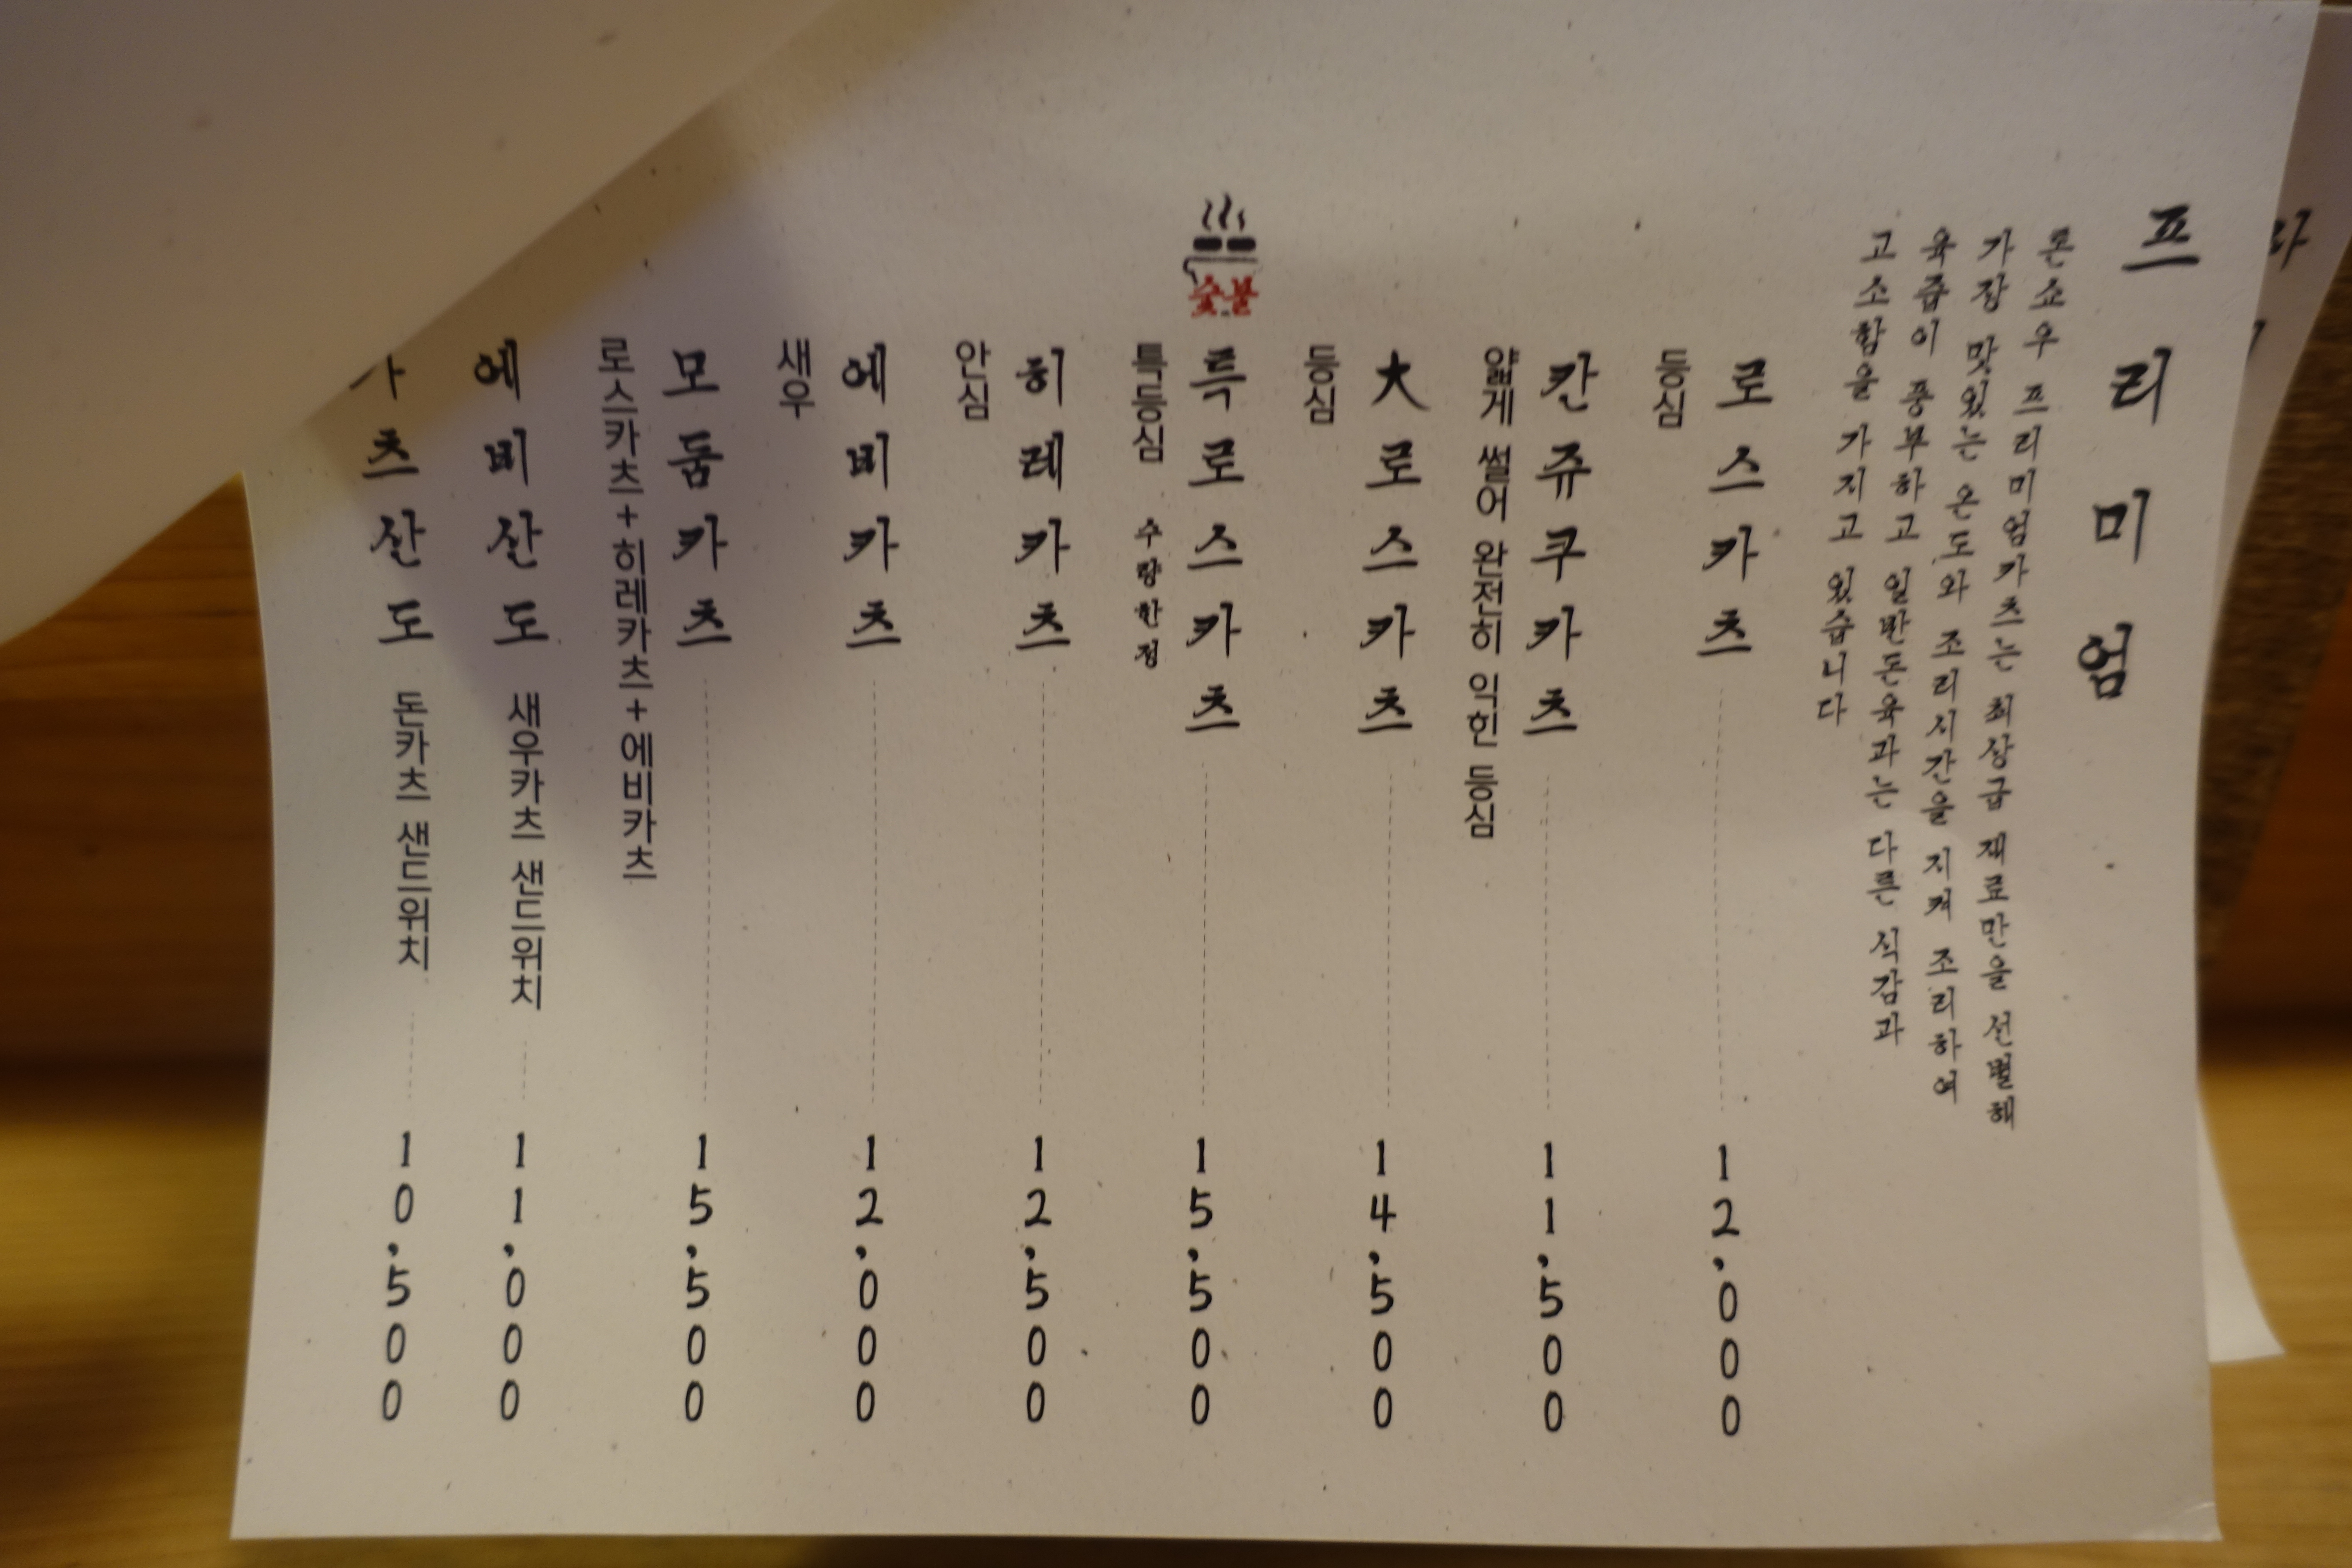 프리미엄
톤쇼우 프리미엄카츠는 최상급 재료만을 선별해
가장 맛있는 온도와 조리시간을 지켜 조리하여
육즙이 풍부하고 일반돈육과는 다른 식감과
고소함을 가지고 있습니다
로스카츠 12,000
등심
칸쥬쿠카츠 11,500
얇게 썰어 완전히 익힌 등심
大로스카츠 14,500
등심
숯불
특로스카츠 15,500
특등심 수량한정
히레카츠 12,500
안심
에비카츠 12,000
새우
모둠카츠 15,500
로스카츠+히레카츠+에비카츠
에비산도 새우카츠 샌드위치 11,000
츠산도 돈카츠 샌드위치 10,500